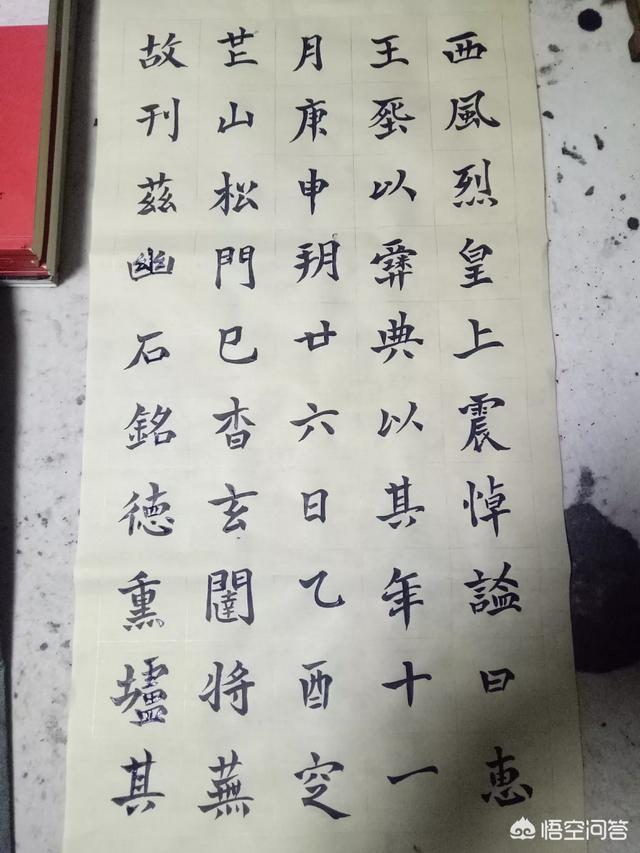 西風烈皇上震悼謚曰惠
王葬以彝典以其年十一
月庚申朔廿六日乙酉窆
芒山松門巳杳玄闥將蕪
故刊茲幽石銘德熏壚其
悟空问答